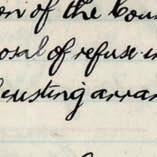 of the Cou
of refuse in
existing arran